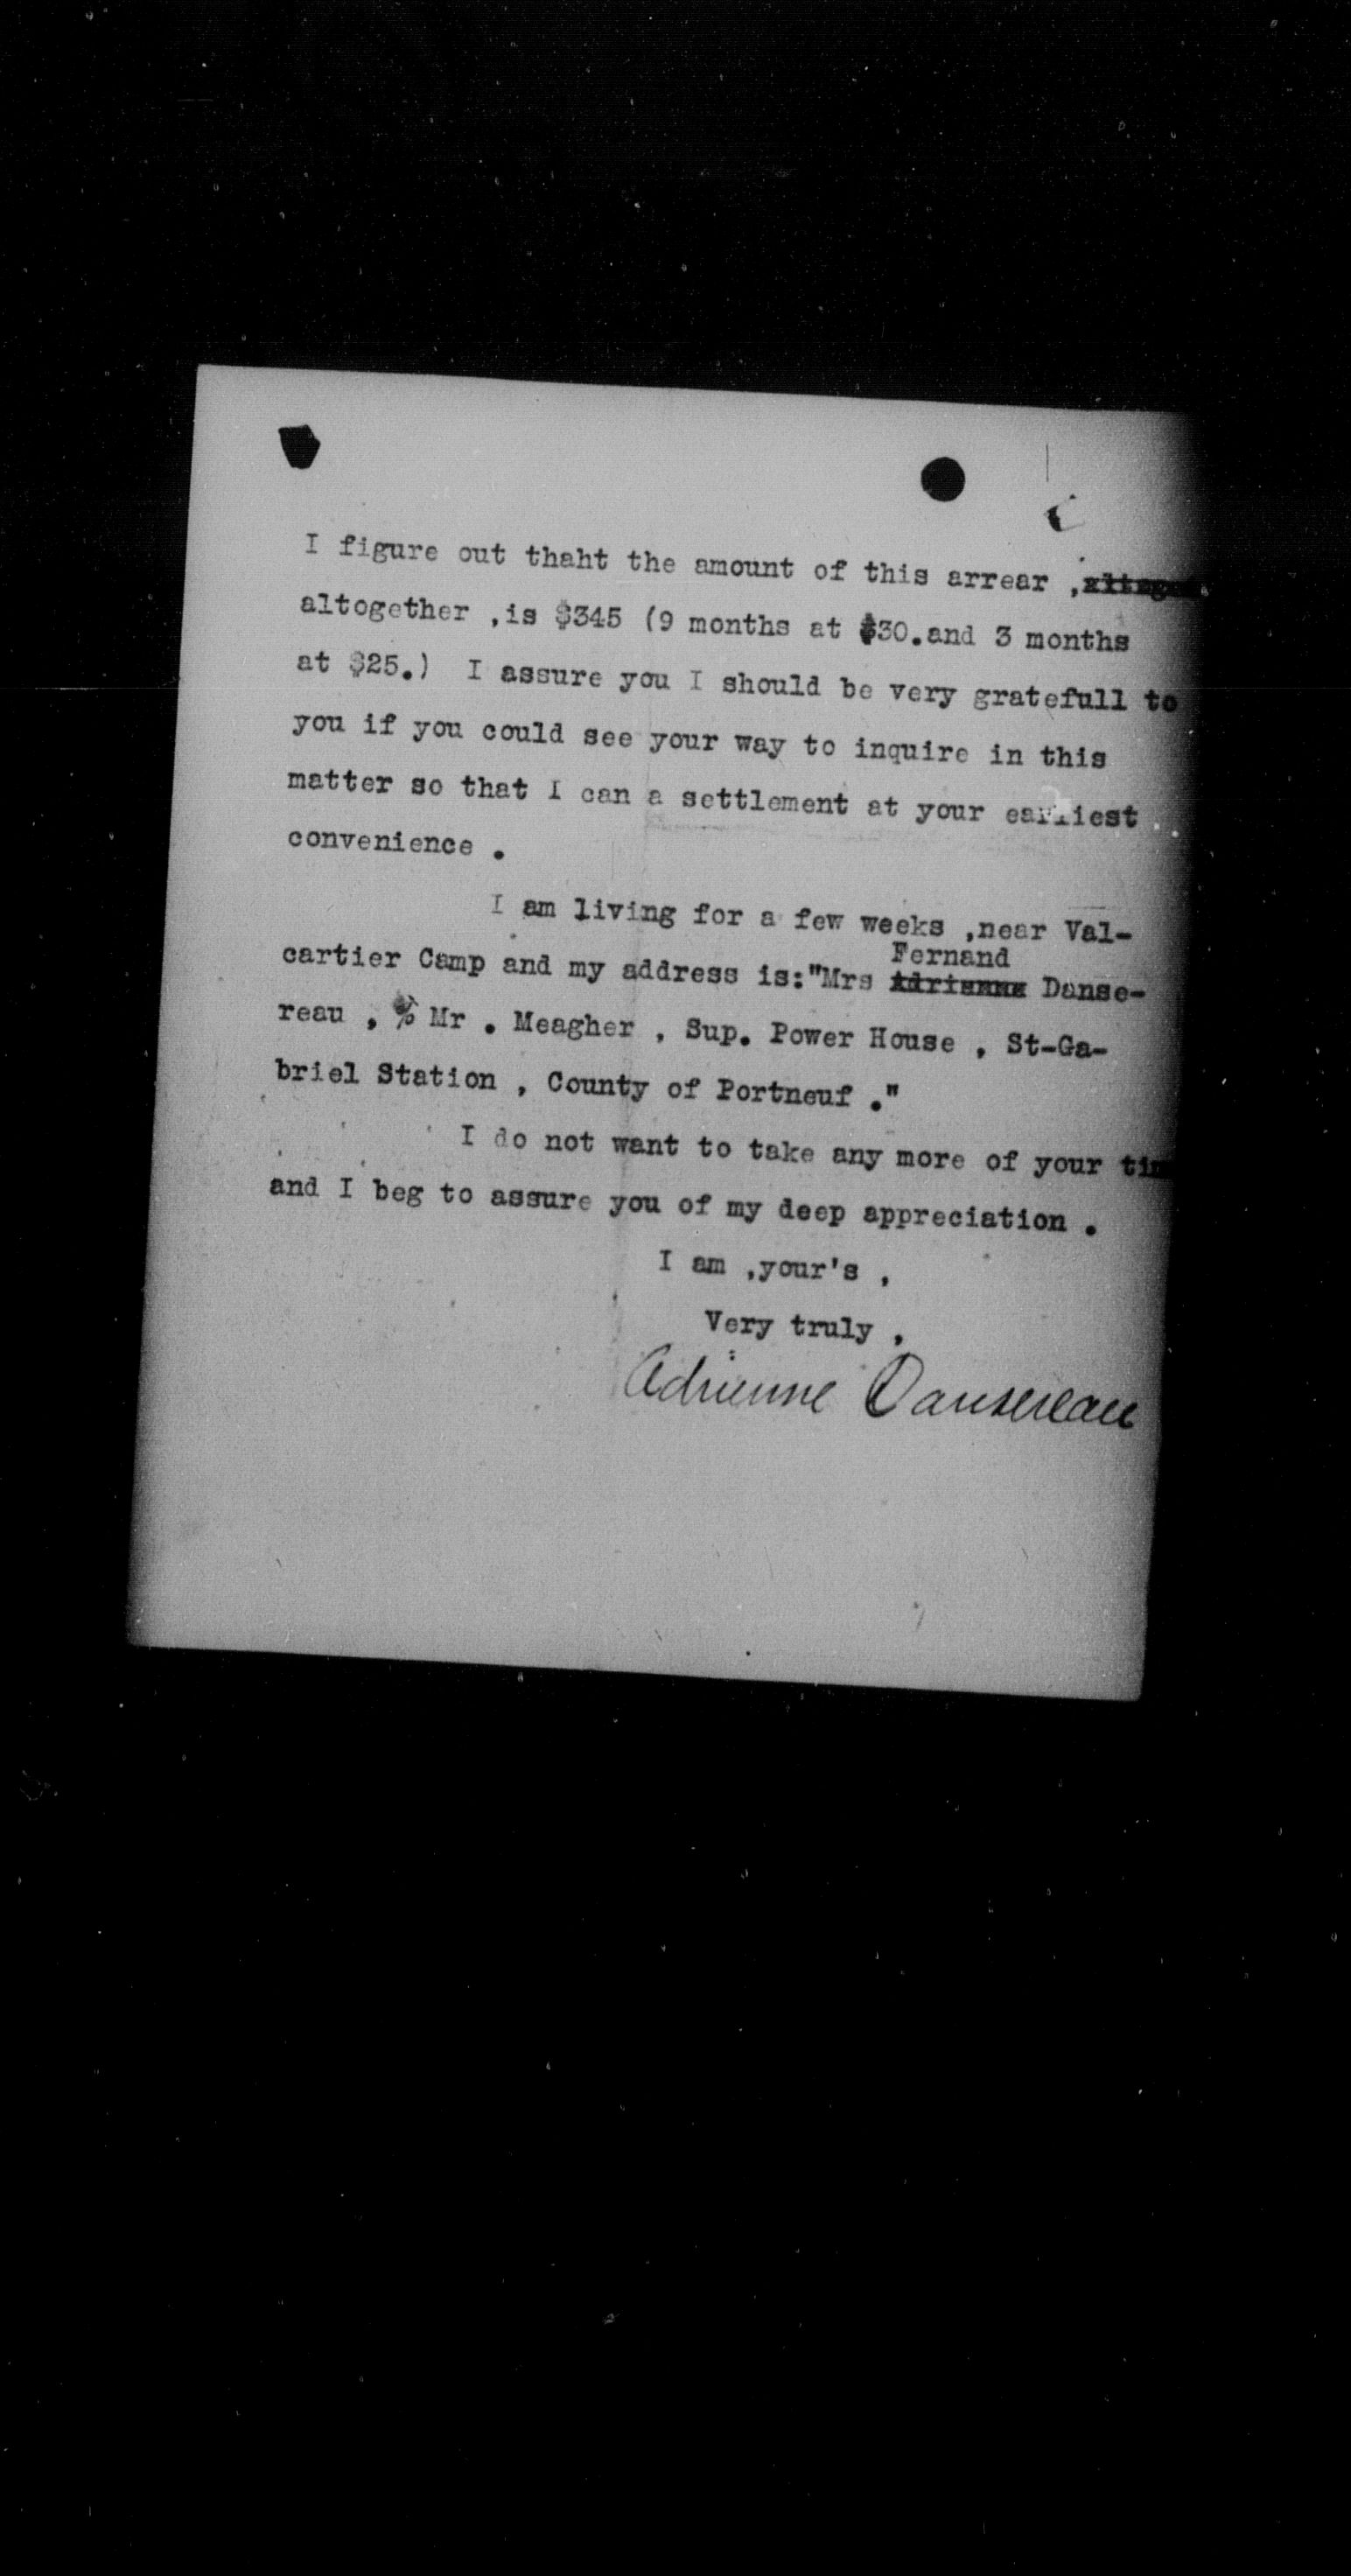 I figure out thaht the amount of this arrear ,
altogether ,is $345 (9 months at $30.and 3 months
at $25.) I assure you I should be very gratefull to
you if you could see your way to inquire in this
matter so that I can a settlement at your earliest
convenience .
I am living for a few weeks ,near Val-
Fernand
cartier Camp and my address is:"Mrs Adrienne Danse-
reau , % Mr . Meagher , Sup. Power House , St-Ga-
briel Station , County of Portneuf ."
I do not want to take any more of your
and I beg to assure you of my deep appreciation .
I am ,your's ,
Very truly ,
Adrienne Dansereau